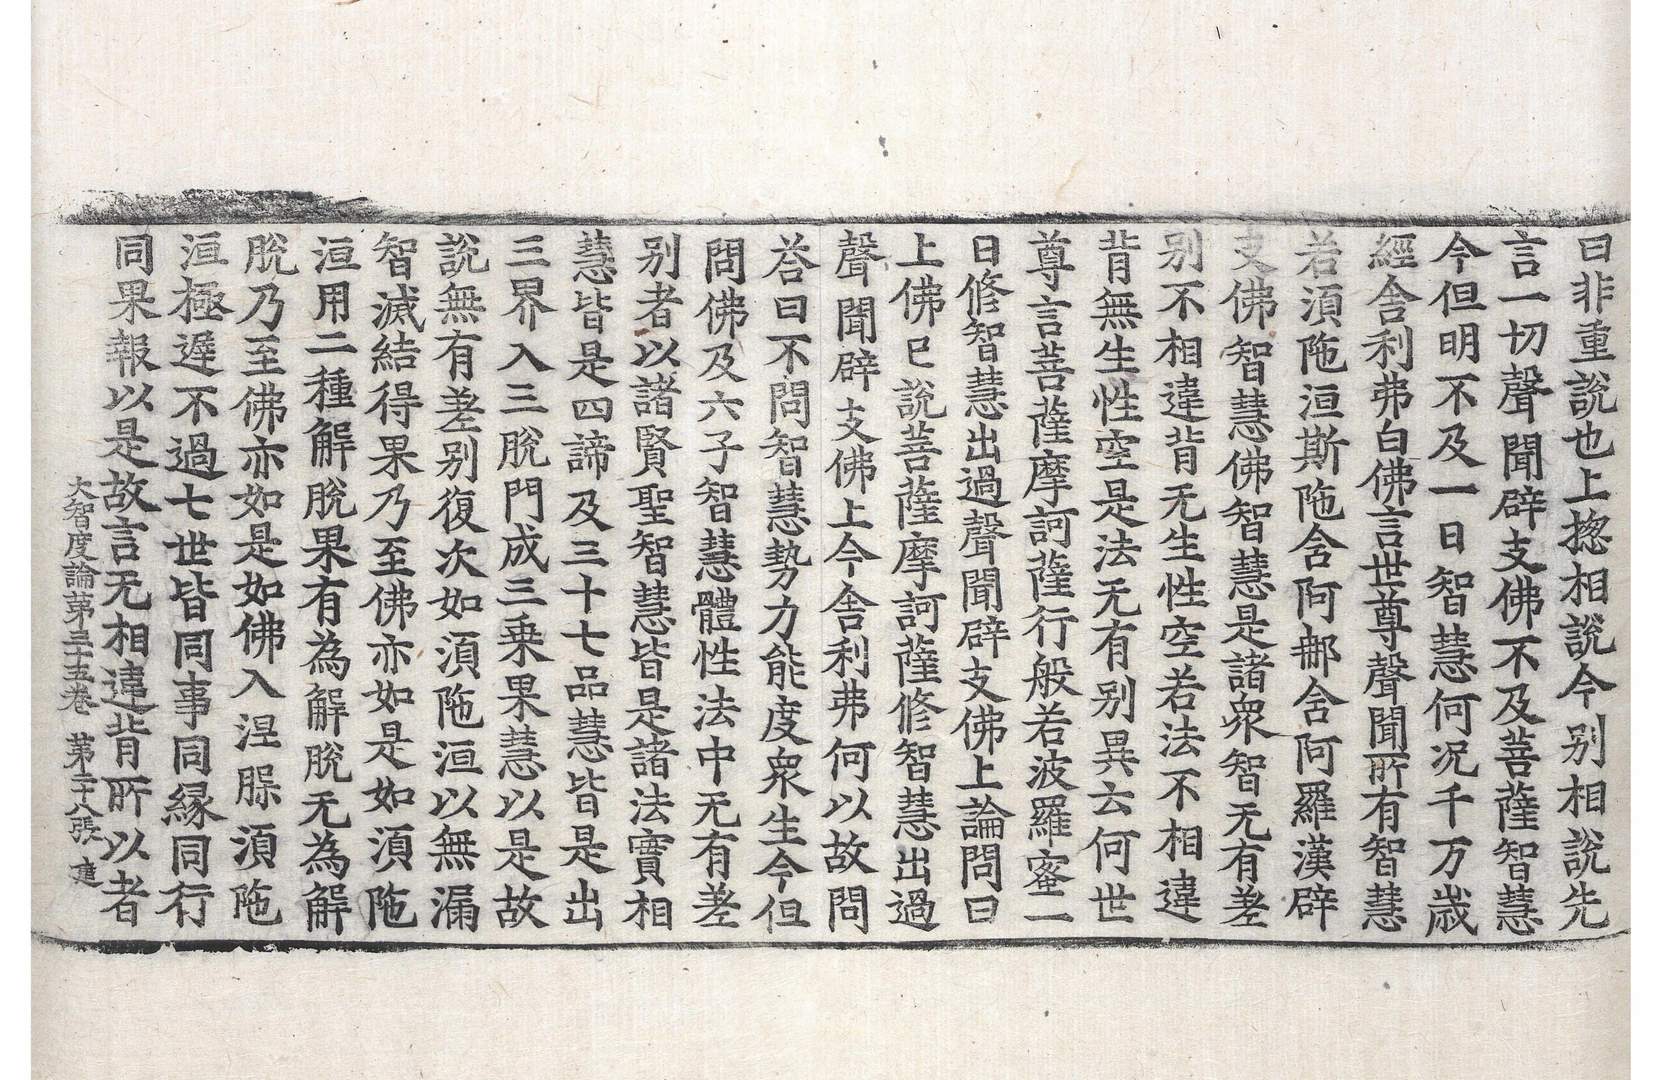 曰非重說也上揔相說今别相說先
言一切聲聞辟支佛不及菩薩智慧
今但明不及一日智慧何況千万歳
經舍利弗白佛言世尊聲聞所有智慧
若須陁洹斯陁含阿那含阿羅漢辟
支佛智慧佛智慧是諸衆智无有差
别不相違背无生性空若法不相違
背無生性空是法无有别異云何世
尊言菩薩摩訶薩行般若波羅蜜一
日修智慧出過聲聞辟支佛上論問曰
上佛已說菩薩摩訶薩修智慧出過
聲聞辟支佛上今舍利弗何以故問
荅曰不問智慧勢力能度衆生今但
問佛及六子智慧體性法中无有差
别者以諸賢聖智慧皆是諸法實相
慧皆是四諦及三十七品慧皆是出
三界入三脫門成三乗果慧以是故
說無有差别復次如須陁洹以無漏
智滅結得果乃至佛亦如是如須陁
洹用二種解脫果有為解脫无為解
脫乃至佛亦如是如佛入涅槃須陁
洹極遲不過七世皆同事同緣同行
同果報以是故言无相違背所以者
大智度論第三十五卷 第二十八張